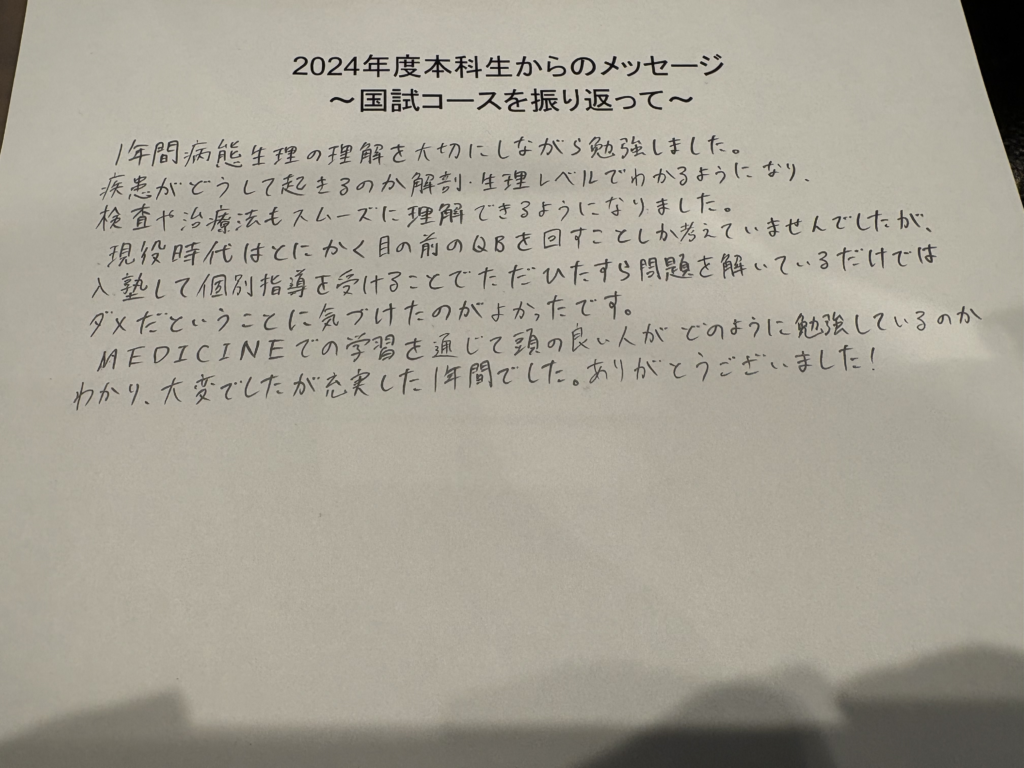 2024年度本科生からのメッセージ
～国試コースを振り返って～
1年間病態生理の理解を大切にしながら勉強しました。
疾患がどうして起きるのか解剖・生理レベルでわかるようになり、
検査や治療法もスムーズに理解できるようになりました。
現役時代はとにかく目の前のQBを回すことしか考えていませんでしたが、
入塾して個別指導を受けることでただひたすら問題を解いているだけでは
ダメだということに気づけたのがよかったです。
MEDICINEでの学習を通じて頭の良い人がどのように勉強しているのか
わかり、大変でしたが充実した1年間でした。ありがとうございました!